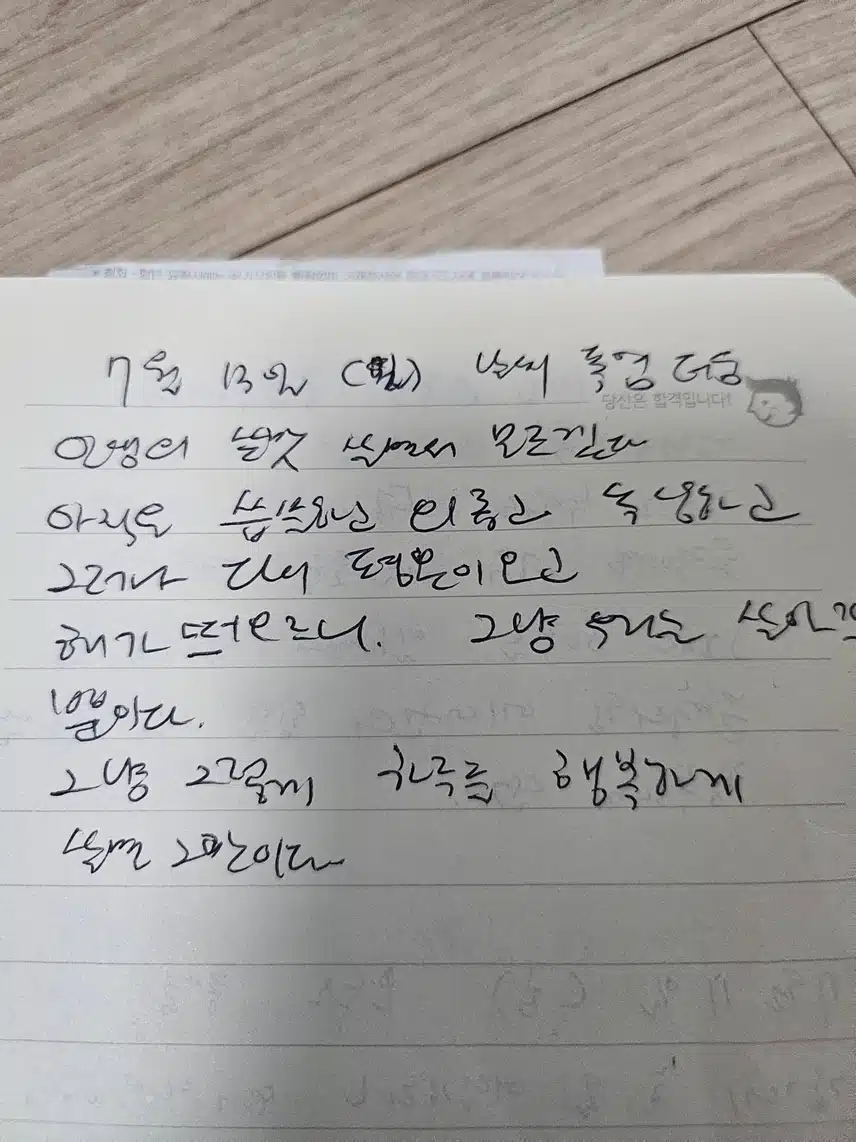 7월 13일 (월) 날씨 폭염 더움
당신은 합격입니다!
인생의 날것 살면서 모르겠다
아직은 씁쓸하고
그러나 다시 평온이 오고
해가 떠오르니. 그냥 우리는 살아갈
뿐이다.
그냥 그렇게 하루를 행복하게
살면 그만이다